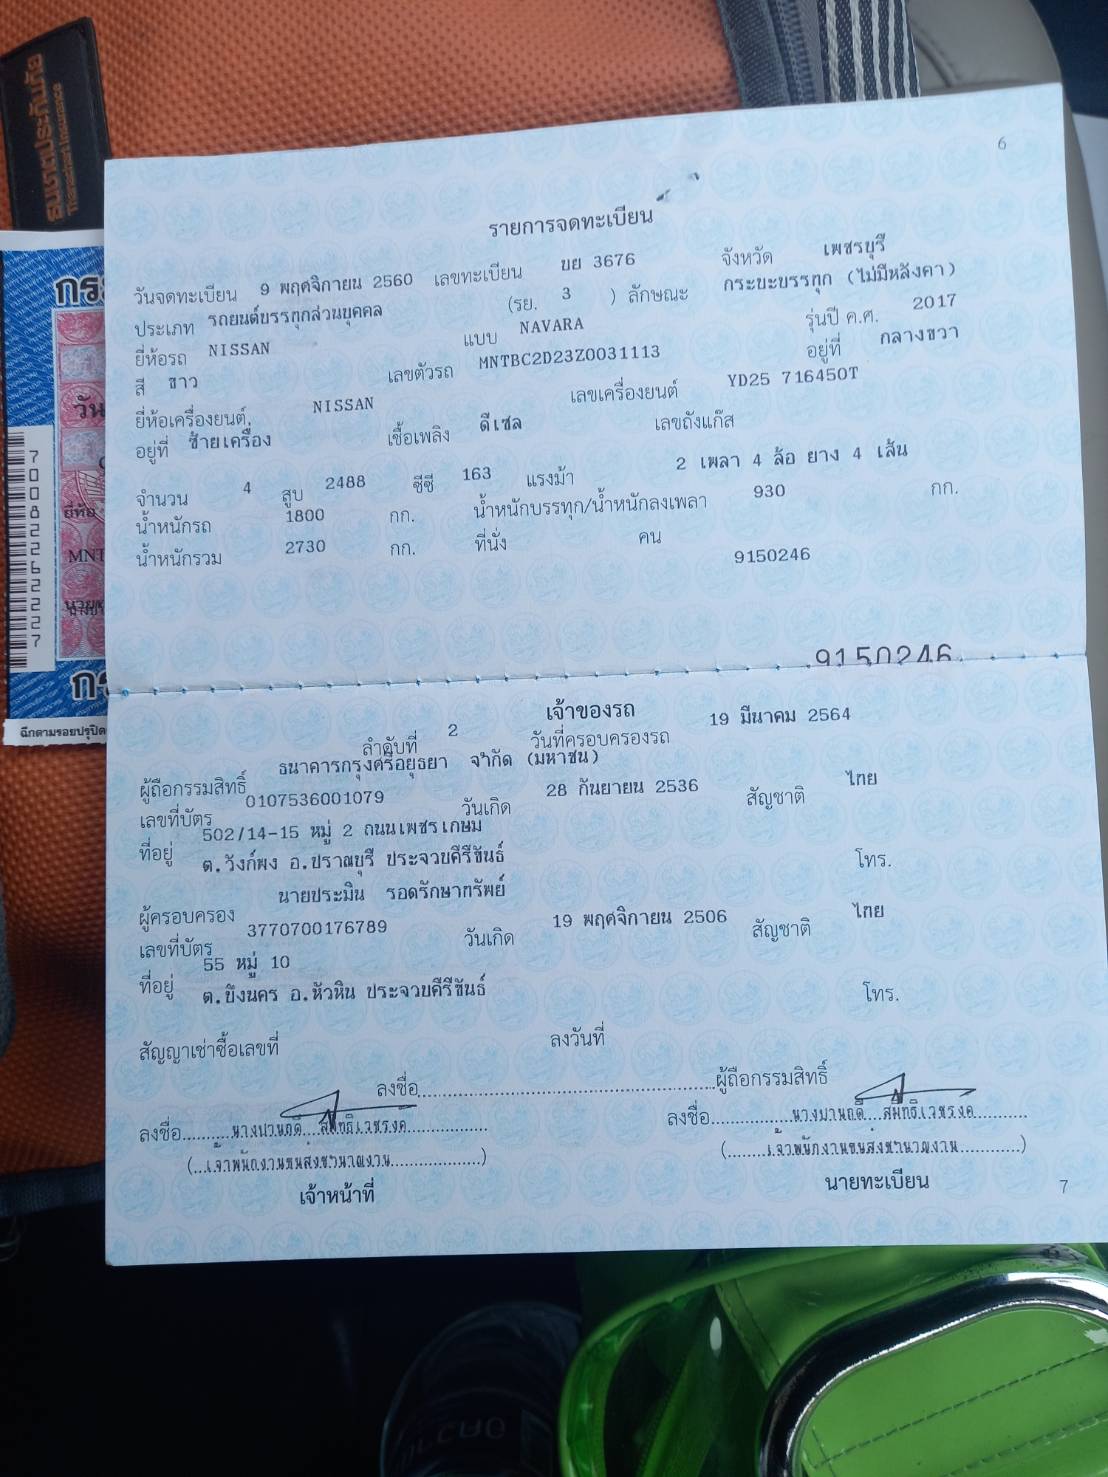 ธนชาตประกันภัย
Thanachart Insurance
6
รายการจดทะเบียน
วันจดทะเบียน 9 พฤศจิกายน 2560 เลขทะเบียน บย 3676 จังหวัด เพชรบุรี
ประเภท รถยนต์บรรทุกส่วนบุคคล (รย. 3 ) ลักษณะ กระบะบรรทุก (ไม่มีหลังคา)
ยี่ห้อรถ NISSAN แบบ NAVARA รุ่นปี ค.ศ. 2017
สี ขาว เลขตัวรถ MNTBC2D23Z0031113 อยู่ที่ กลางขวา
ยี่ห้อเครื่องยนต์ NISSAN เลขเครื่องยนต์ YD25 716450T
อยู่ที่ ซ้ายเครื่อง เชื้อเพลิง ดีเซล เลขถังแก๊ส
จำนวน 4 สูบ 2488 ซีซี 163 แรงม้า 2 เพลา 4 ล้อ ยาง 4 เส้น
น้ำหนักรถ 1800 กก. น้ำหนักบรรทุก/น้ำหนักลงเพลา 930 กก.
น้ำหนักรวม 2730 กก. ที่นั่ง คน
9150246
9150246
เจ้าของรถ
ลำดับที่ 2 วันที่ครอบครองรถ 19 มีนาคม 2564
ผู้ถือกรรมสิทธิ์ ธนาคารกรุงศรีอยุธยา จำกัด (มหาชน)
เลขที่บัตร 0107536001079 วันเกิด 28 กันยายน 2536 สัญชาติ ไทย
ที่อยู่ 502/14-15 หมู่ 2 ถนนเพชรเกษม
ต.วังก์พง อ.ปราณบุรี ประจวบคีรีขันธ์ โทร.
ผู้ครอบครอง นายประมิน รอดรักษาทรัพย์
เลขที่บัตร 3770700176789 วันเกิด 19 พฤศจิกายน 2506 สัญชาติ ไทย
ที่อยู่ 55 หมู่ 10
ต.บึงนคร อ.หัวหิน ประจวบคีรีขันธ์ โทร.
สัญญาเช่าซื้อเลขที่ ลงวันที่
ลงชื่อ ผู้ถือกรรมสิทธิ์
ลงชื่อ ลงชื่อ
เจ้าหน้าที่ นายทะเบียน
7
7008226222227
วัน
ยี่ห้อ
MNT
ฉีกตามรอยปรุปิด